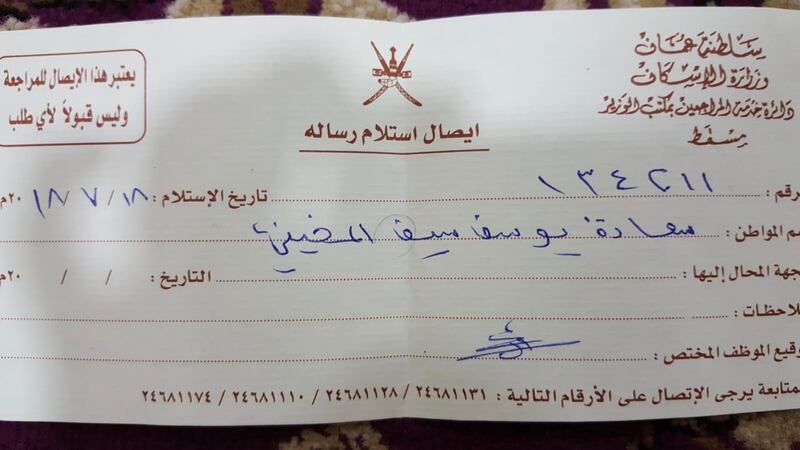 سلطنة عمان
وزارة الإسكان
دائرة خدمة المراجعين بمكتب الوزير
مسقط
يعتبر هذا الإيصال للمراجعة
وليس قبولاً لأي طلب
ايصال استلام رساله
رقم : ١٣٤٢١١ تاريخ الإستلام : ١٨ / ٧ / ٢٠١٨م
سم المواطن : يوسف
جهة المحال إليها : التاريخ : / / ٢٠م
لاحظات :
وقيع الموظف المختص :
متابعة يرجى الإتصال على الأرقام التالية : ٢٤٦٨١١٣١ / ٢٤٦٨١١٢٨ / ٢٤٦٨١١١٠ / ٢٤٦٨١١٧٤